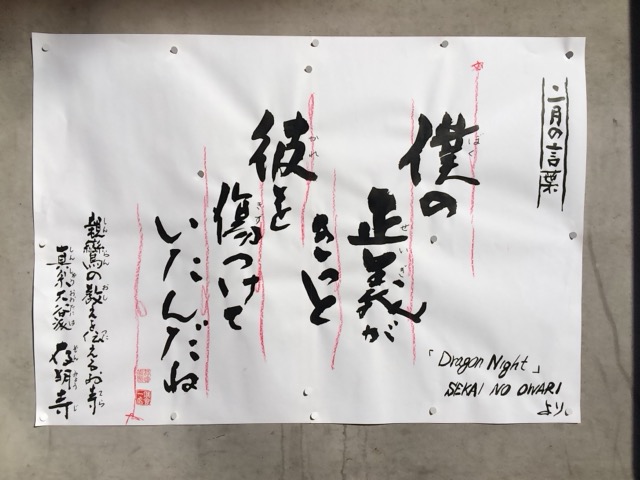 二月の言葉
僕の
ぼく
正義が
せいぎ
きっと
彼を
かれ
傷つけて
きず
いたんだね
「Dragon Night」
SEKAI NO OWARI
より。
親鸞の教えを伝えるお寺
しんらん おし つた てら
真宗大谷派
しんしゅうおおたには
存明寺
ぞんみょうじ